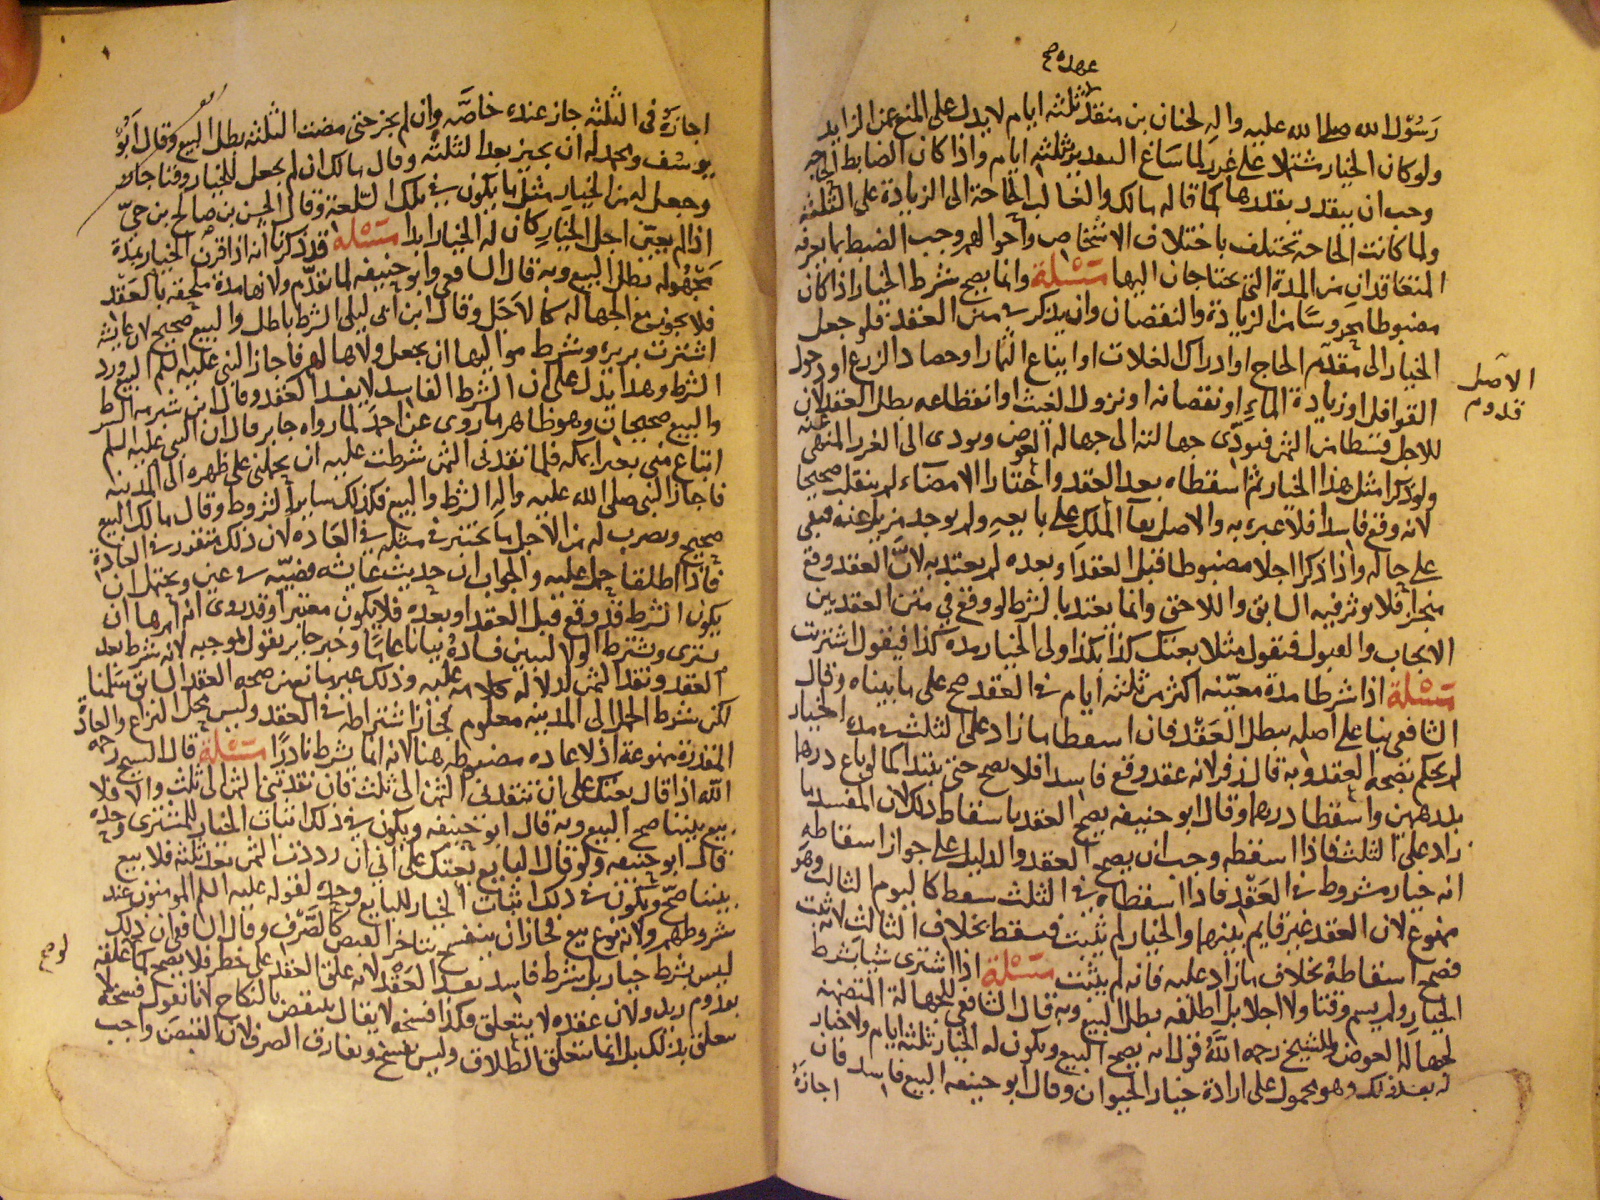 عهده صح
رسول الله صلى الله عليه واله لحنان بن منقذ ثلثه ايام لا يدل على المنع عن الزايد
ولو كان الخيار مشتملا على غرر لما ساغ التقدير بثلثه ايام واذا كان الضابط الحاجه
وجب ان يتقدر بقدرها كما قاله مالك والغالب الحاجة الى الزيادة على الثلثه
ولما كانت الحاجه تختلف باختلاف الاشخاص واحوالهم وجب الضبط بما يعرفه
المتعاقدان من المدة التي يحتاجان اليها مسئلة وانما يصح شرط الخيار اذا كان
مضبوطا محروسا من الزيادة والنقصان وان يذكر في متن العقد فلو جعل
الخيار الى مقدم الحاج او ادراك الغلات او ايناع الثمار او حصاد الزرع او دخول
القوافل او زيادة الماء او نقصانه او نزول الغيث او انقطاعه بطل العقد لان
الاصل
قدوم
للاجل قسطا من الثمن فيؤدى جهالته الى جهالة العوض ويودى الى الغرر المنهى عنه
ولو ذكرا مثل هذا الخيار ثم اسقطاه بعد العقد واختارا الامضاء لم ينقلب صحيحا
لانه وقع فاسدا فلا عبره به والاصل بقا الملك على بايعه ولم يوجد مزيل عنه فبقى
على حاله واذا ذكرا اجلا مضبوطا قبل العقد او بعده لم يعتد به لان العقد وقع
منجزا فلا يوثر فيه السابق واللاحق وانما يعتد بالشرط لو وقع في متن العقد بين
الايجاب والقبول فيقول مثلا بعتك كذا بكذا ولى الخيار مدة كذا فيقول اشتريت
مسئلة اذا شرطا مدة معينه اكثر من ثلثه ايام في العقد صح على ما بيناه وقال
الشافعي بنا على اصله يبطل العقد فان اسقطا ما زاد على الثلث في مدة الخيار
لم يحكم بصحه العقد وبه قال زفر لانه عقد وقع فاسدا فلا يصح حتى يبتدا كما لو باع درهما
بدرهمين واسقطا درهما وقال ابو حنيفه يصح العقد باسقاط ذلك لان المفسد ما
زاد على الثلث فاذا اسقطه وجب ان يصح العقد والدليل على جواز اسقاطه
انه خيار مشروط في العقد فاذا اسقطاه في الثلث سقط كاليوم الثالث وهو
ممنوع لان العقد غير قايم بينهما والخيار لم يثبت فيسقط بخلاف الثالث لانه ثبت
فصح اسقاطه بخلاف ما زاد عليه فانه لم يثبت مسئلة اذا اشترى شيا بشرط
الخيار ولم يسم وقتا ولا اجلا بل اطلقه بطل البيع وبه قال الشافعي للجهالة المتضمنه
لجهالة العوض وللشيخ رحمه الله قول انه يصح البيع ويكون له الخيار ثلثه ايام ولا خيار
له بعد ذلك وهو محمول على ارادة خيار الحيوان وقال ابو حنيفه البيع فاسد فان
اجازه
اجازه في الثلثه جاز عنده خاصه وان لم يجز حتى مضت الثلثه بطل البيع وقال ابو
يوسف ومحمد له ان يجيز بعد الثلثه وقال مالك ان لم يجعل للخيار وقتا جاز
وجعل له من الخيار مثل ما يكون في تلك السلعة وقال الحسن بن صالح بن حي
اذا لم يعين اجل الخيار كان له الخيار ابدا مسئلة قد ذكرنا انه اذا قرن الخيار بمدة
مجهوله بطل البيع وبه قال الشافعي وابو حنيفه لما تقدم ولانها مدة ملحقه بالعقد
فلا يجوز مع الجهاله كالاجل وقال ابن ابي ليلى الشرط باطل والبيع صحيح لان عايشه
اشترت بريره وشرط مواليها ان يجعل ولاها لهم فاجاز النبي عليه السلم البيع ورد
الشرط وهذا يدل على ان الشرط الفاسد لا يفسد العقد وقال ابن شبرمه الشرط
والبيع صحيحان وهو ظاهر ما روى عن احمد لما رواه جابر قال ان النبي عليه السلم
ابتاع منى بعيرا بمكه فلما نقدنى الثمن شرطت عليه ان يحملنى على ظهره الى المدينه
فاجاز النبي صلى الله عليه واله الشرط والبيع فكذلك ساير الشروط وقال مالك البيع
صحيح ويضرب له من الاجل ما يختبر في مثله في العاده لان ذلك متقرر في العادة
فاذا اطلقا حمل عليه والجواب ان حديث عايشه قضيه في عين ويحتمل ان
يكون الشرط قد وقع قبل العقد او بعده فلا يكون معتبرا وقد روى انه امرها ان
تشترى وتشترط الولا ليبين فساده بيانا عاما وخبر جابر نقول بموجبه لانه شرط بعد
العقد ونقد الثمن لدلالة كلامه عليه وذلك غير مانع من صحه العقد السابق سلمنا
لكن شرط الحمل الى المدينه معلوم فجاز اشتراطه في العقد وليس محل النزاع والعادة
المقدرة ممنوعة اذ لا عاده مضبوطه هنا لانه انما يشرط نادرا مسئلة قال الشيخ رحمه
الله اذا قال بعتك على ان تنقدنى الثمن الى ثلث فان نقدتنى الثمن الى ثلث والا فلا
بيع بيننا صح البيع وبه قال ابو حنيفه ويكون في ذلك اثبات الخيار للمشترى وحده
قال ابو حنيفه ولو قال البايع بعتك على انى ان رددت الثمن بعد ثلثه فلا بيع
بيننا صح ويكون في ذلك اثبات الخيار للبايع وحده لقوله عليه السلم المومنون عند
شروطهم ولانه نوع بيع فجاز ان ينفسخ بتاخر القبض كالصرف وقال الشافعي ان ذلك
لو صح
ليس بشرط خيار بل شرط فاسد يفسد العقد لانه علق العقد على خطر فلا يصح كما علقه
بقدوم زيد ولان عقده لا يتعلق فكذا فسخه لا يقال ينتقض بالنكاح لانا نقول فسخه لا
يتعلق بذلك بل انما يتعلق الطلاق وليس بفسخ ويفارق الصرف لان القبض واجب